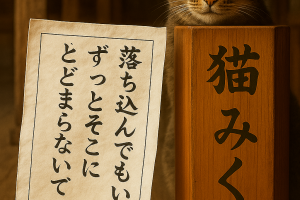 落ち込んでもい
ずっとそこに
とどまらないで
猫みく